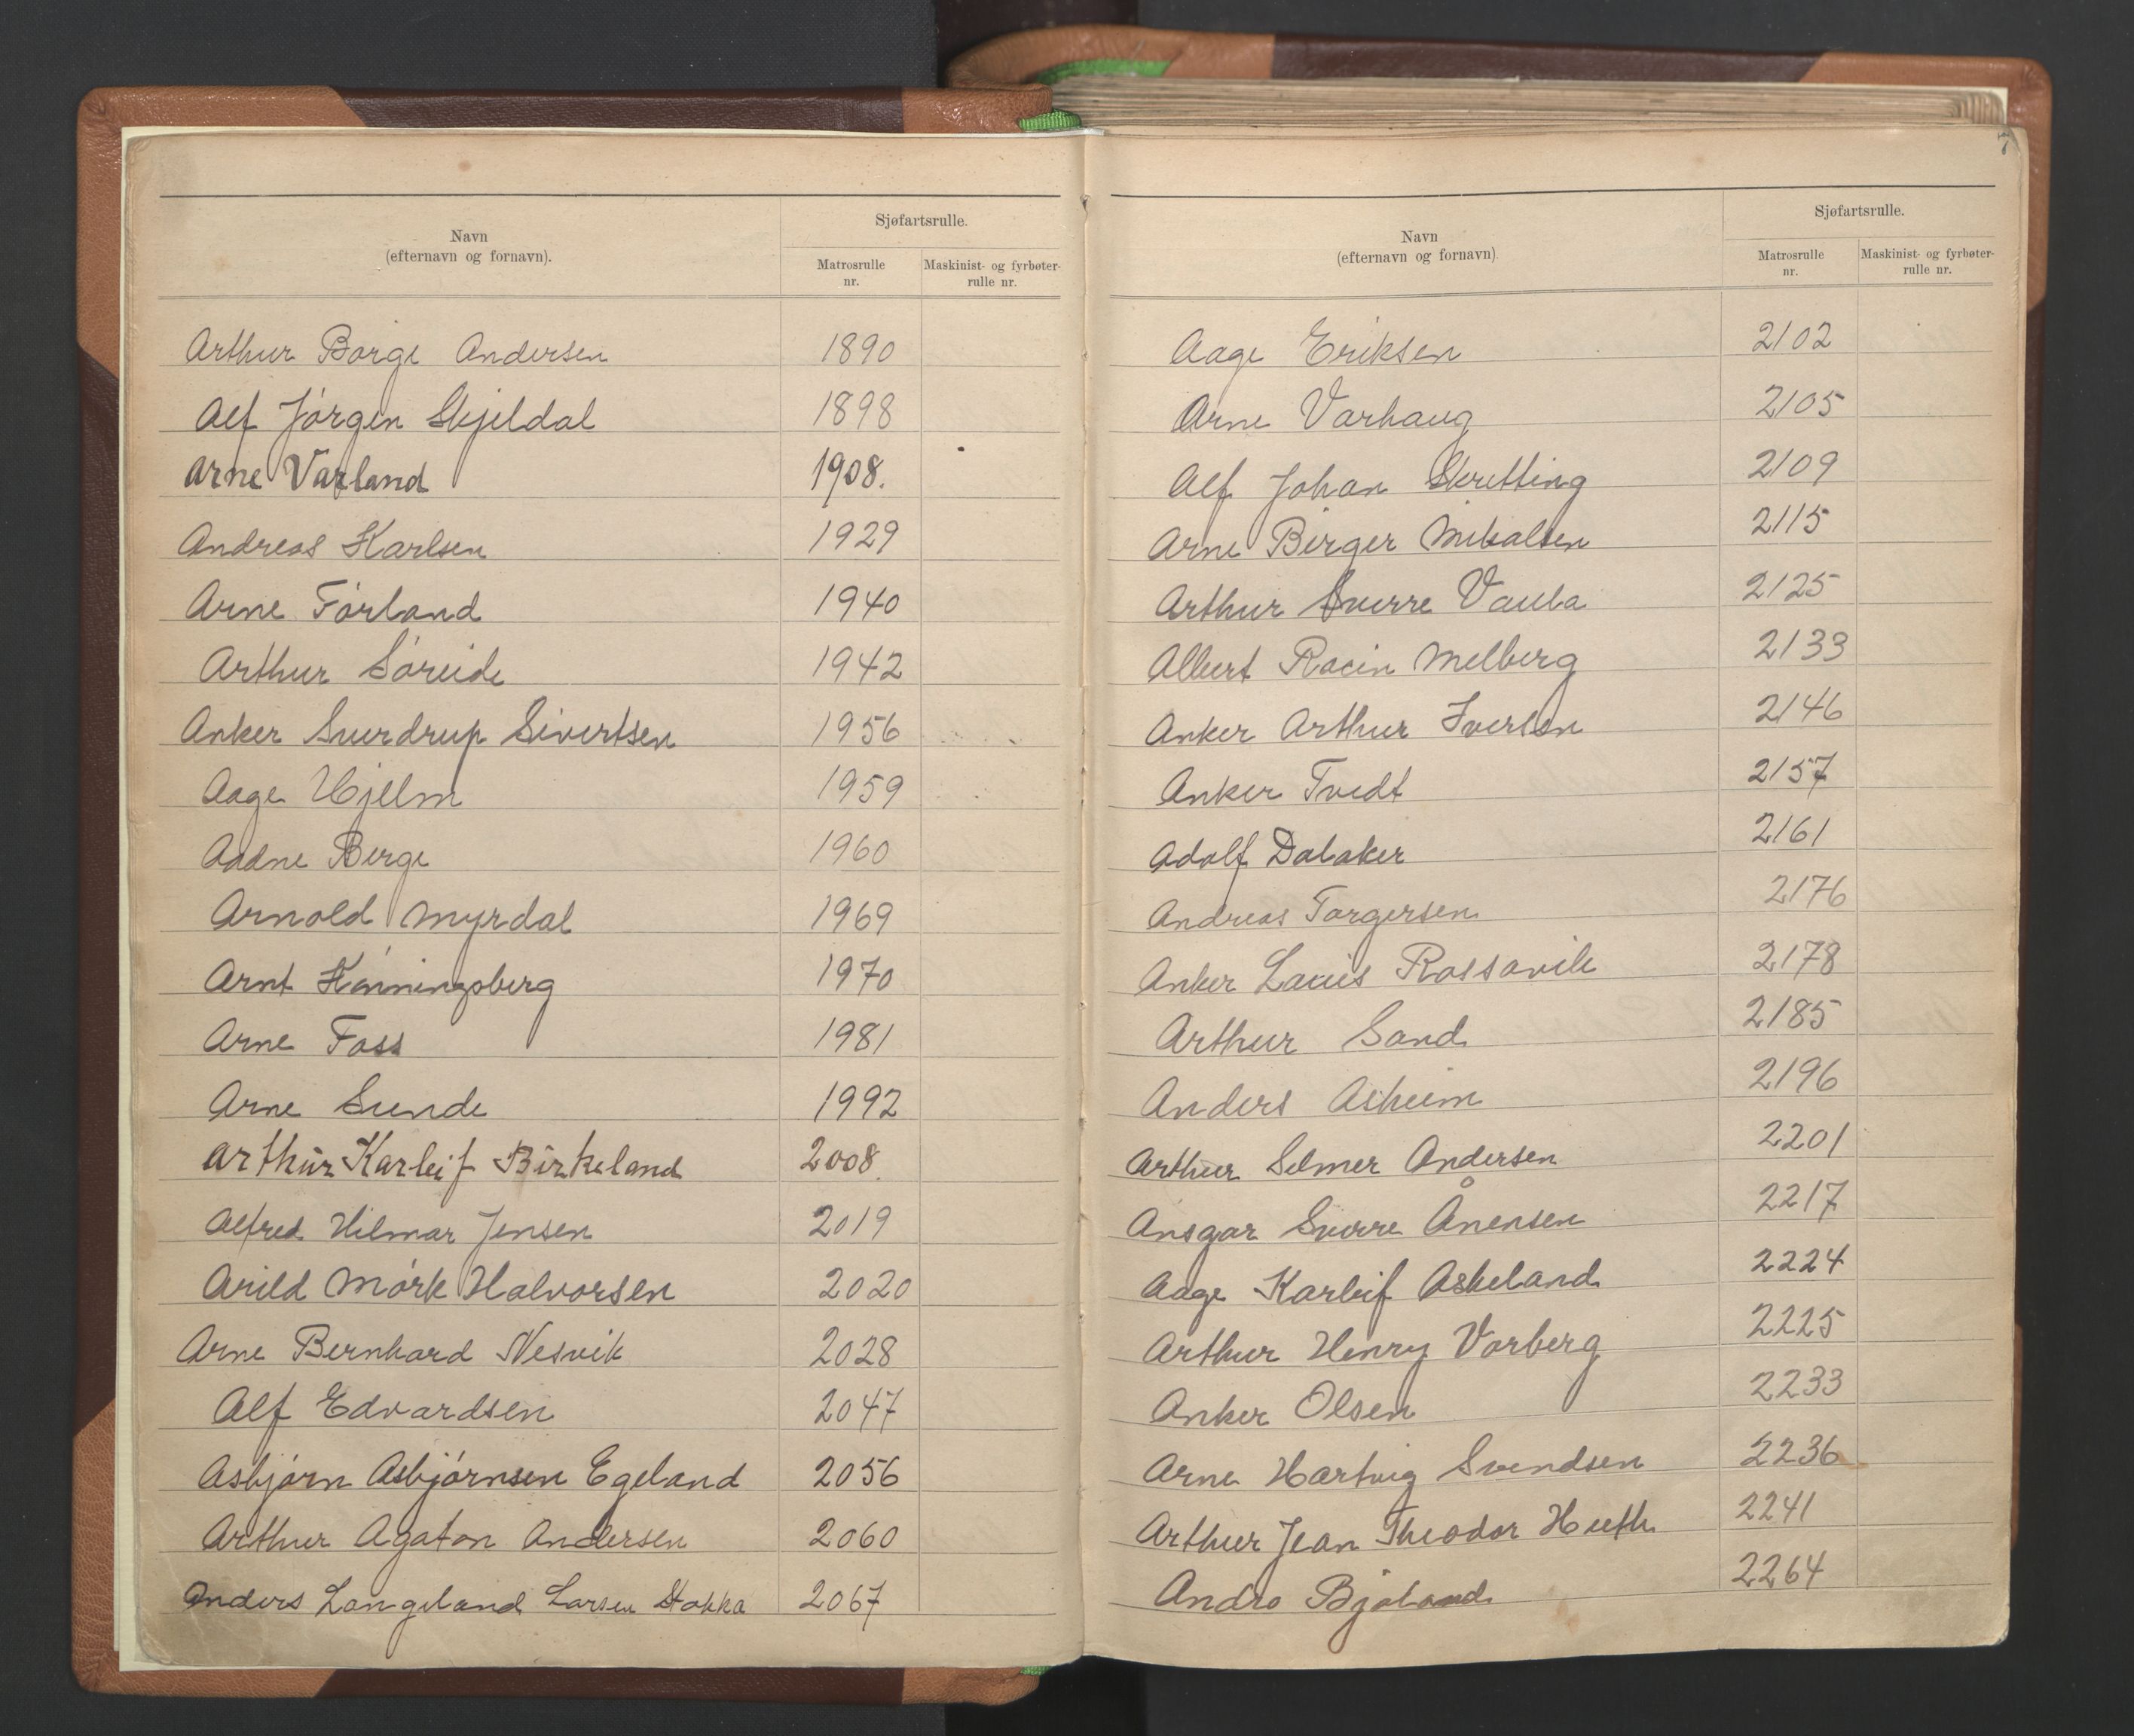 Navn
(efternavn og fornavn).
Sjøfartsrulle.
Matrosrulle
nr.
Maskinist- og fyrbøter-
rulle nr.
Arthur Børge Andersen 1890
Alf Jørgen Skjeldal 1898
Arne Varland 1908.
Andreas Karlsen 1929
Arne Førland 1940
Arthur Søreide 1942
Anker Sverdrup Sivertsen 1956
Aage Hjelm 1959
Aadne Berge 1960
Arnold Myrdal 1969
Arnt Hønningsberg 1970
Arne Foss 1981
Arne Sunde 1992
Arthur Karleif Birkeland 2008.
Alfred Hilmar Jensen 2019
Arild Mørk Halvorsen 2020
Arne Bernhard Nesvik 2028
Alf Edvardsen 2047
Asbjørn Asbjørnsen Egeland 2056
Arthur Agaton Andersen 2060
Anders Langeland Larsen Stokka 2067
7
Navn
(efternavn og fornavn)
Sjøfartsrulle.
Matrosrulle
nr.
Maskinist- og fyrbøter-
rulle nr.
Aage Eriksen 2102
Arne Varhaug 2105
Alf Johan Skretting 2109
Arne Birger Mikalsen 2115
Arthur Sverre Vaula 2125
Albert Racin Melberg 2133
Anker Arthur Iversen 2146
Anker Tvedt 2157
Adolf Dalaker 2161
Andreas Torgersen 2176
Anker Louis Rossavik 2178
Arthur Sand 2185
Anders Asheim 2196
Arthur Selmer Andersen 2201
Ansgar Sverre Ånensen 2217
Aage Karleif Askeland 2224
Arthur Henry Vorberg 2225
Anker Olsen 2233
Arne Hartvig Svendsen 2236
Arthur Jean Theodor Hueth 2241
Andro Bjøland 2264